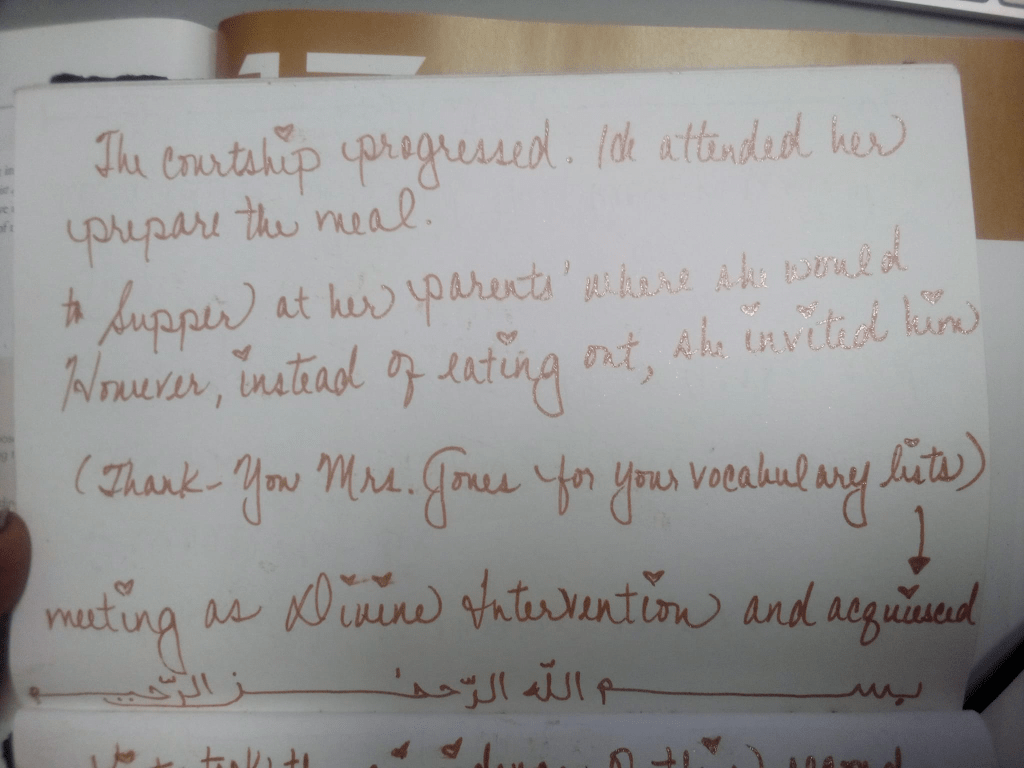 17
The courtship progressed. He attended her
prepare the meal.
to Supper at her parents' where she would
However, instead of eating out, she invited him
(Thank-You Mrs. Jones for your vocabulary lists)
meeting as Divine Intervention and acquiesced
بســـم الله الرّحمـٰـن الرّحيـــم